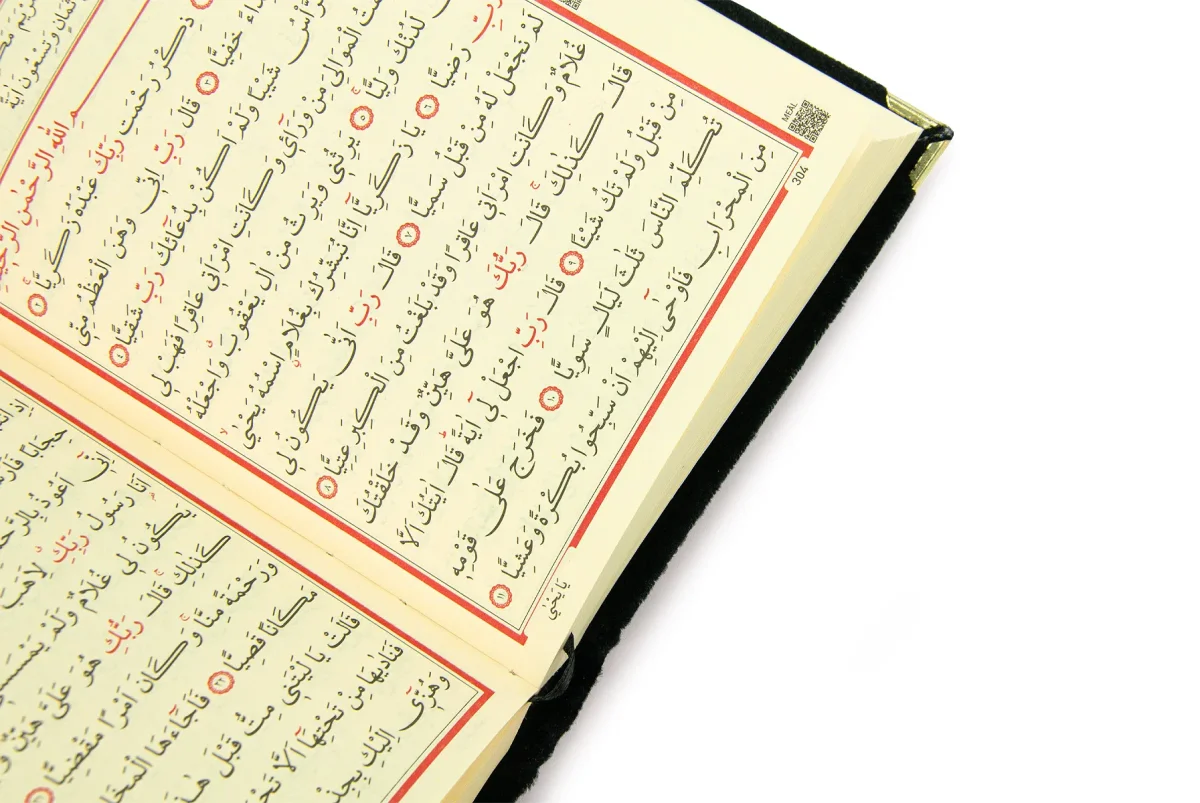 ثَمَانٍ وَتِسْعُونَ اٰيَةً
بِسْمِ اللّٰهِ الرَّحْمٰنِ الرَّحِيمِ
ذِكْرُ رَحْمَتِ رَبِّكَ عَبْدَهُ زَكَرِيَّا ﴿٢﴾
خَفِيًّا ﴿٣﴾ قَالَ رَبِّ اِنّٖى وَهَنَ الْعَظْمُ مِنّٖى
شَيْبًا وَلَمْ اَكُنْ بِدُعَٓائِكَ رَبِّ شَقِيًّا ﴿٤﴾
الْمَوَالِىَ مِنْ وَرَٓاءٖى وَكَانَتِ امْرَاَتٖى عَاقِرًا فَهَبْ لٖى
لَدُنْكَ وَلِيًّا ﴿٥﴾ يَرِثُنٖى وَيَرِثُ مِنْ اٰلِ يَعْقُوبَ وَاجْعَلْهُ
رَبِّ رَضِيًّا ﴿٦﴾ يَا زَكَرِيَّٓا اِنَّا نُبَشِّرُكَ بِغُلَامٍ اسْمُهُ يَحْيٰى
لَمْ نَجْعَلْ لَهُ مِنْ قَبْلُ سَمِيًّا ﴿٧﴾ قَالَ رَبِّ اَنّٰى يَكُونُ لٖى
غُلَامٌ وَكَانَتِ امْرَاَتٖى عَاقِرًا وَقَدْ بَلَغْتُ مِنَ الْكِبَرِ عِتِيًّا ﴿٨﴾
قَالَ كَذٰلِكَ قَالَ رَبُّكَ هُوَ عَلَىَّ هَيِّنٌ وَقَدْ خَلَقْتُكَ
مِنْ قَبْلُ وَلَمْ تَكُ شَيْـًٔا ﴿٩﴾ قَالَ رَبِّ اجْعَلْ لٖٓى اٰيَةً قَالَ اٰيَتُكَ اَلَّا
تُكَلِّمَ النَّاسَ ثَلٰثَ لَيَالٍ سَوِيًّا ﴿١٠﴾ فَخَرَجَ عَلٰى قَوْمِهٖ
مِنَ الْمِحْرَابِ فَاَوْحٰٓى اِلَيْهِمْ اَنْ سَبِّحُوا بُكْرَةً وَعَشِيًّا ﴿١١﴾
يَا يَحْيٰى
304
MEAL
حِجَابًا
اِنّٖٓى اَعُوذُ
اَنَا رَسُولُ رَبِّكِ لِاَهَبَ
يَكُونُ لٖى غُلَامٌ وَلَمْ
كَذٰلِكِ قَالَ رَبُّكِ هُوَ عَلَىَّ هَيِّنٌ
وَرَحْمَةً مِنَّا وَكَانَ اَمْرًا مَقْضِيًّا ﴿٢١﴾
مَكَانًا قَصِيًّا ﴿٢٢﴾ فَاَجَٓاءَهَا
قَالَتْ يَا لَيْتَنٖى مِتُّ قَبْلَ هٰذَا
فَنَادٰيهَا مِنْ تَحْتِهَٓا اَلَّا
وَهُزّٖٓى اِلَيْكِ